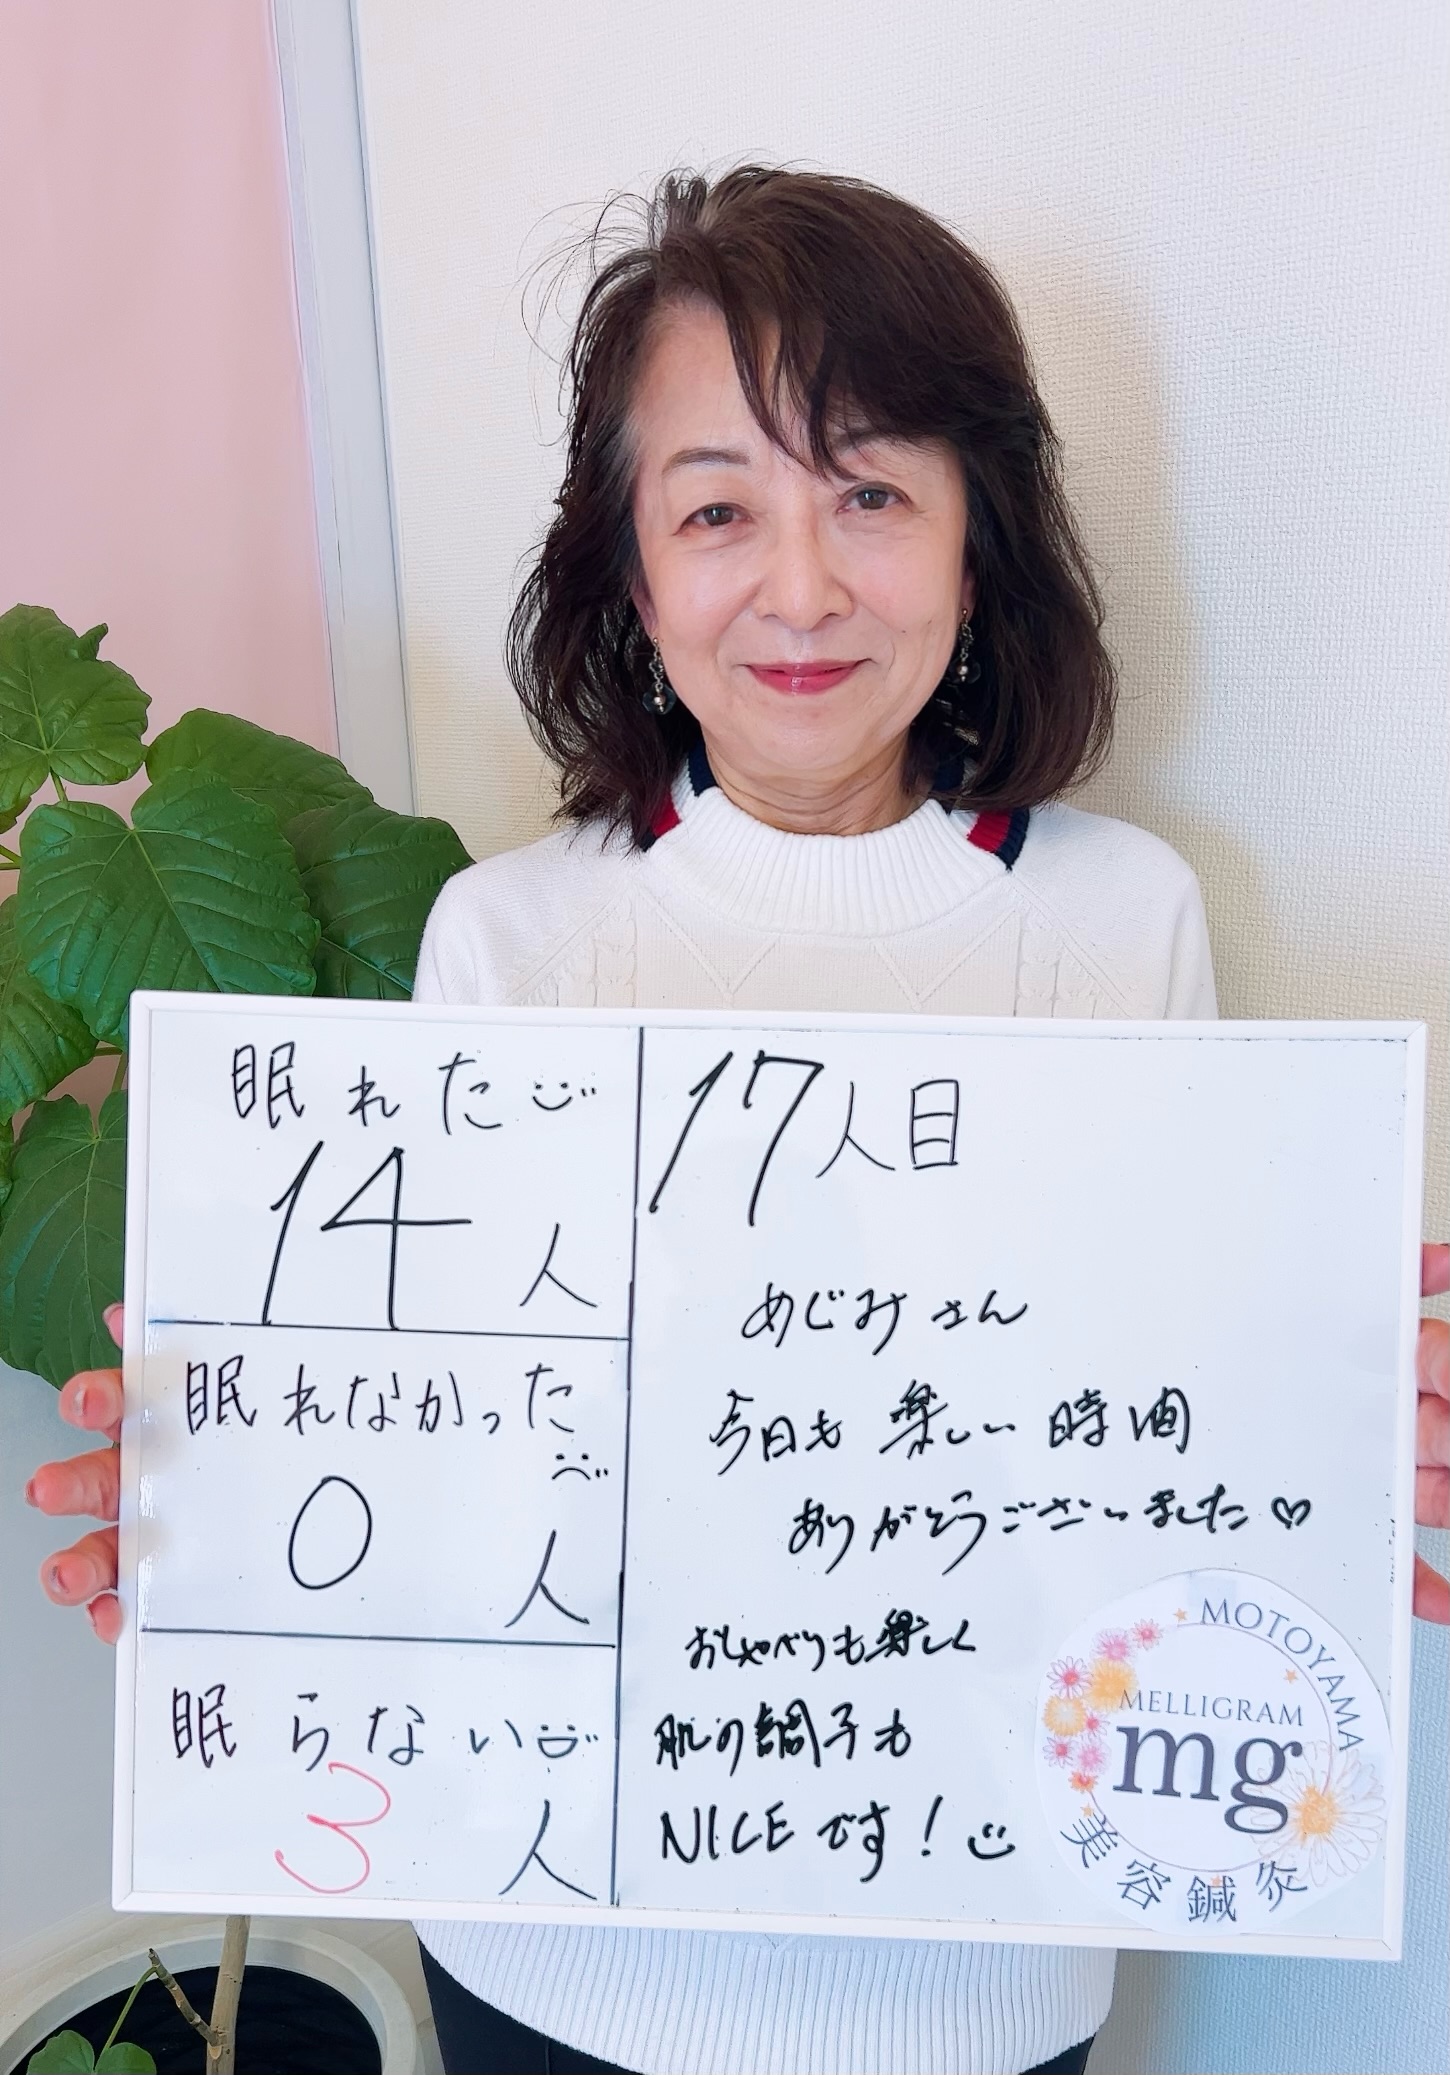 眠れた
14人
眠れなかった
0人
眠らない
3人
17人目
めじみさん
今日も楽しい時間
ありがとうございました♡
おしゃべりも楽しく
肌の調子も
NICEです!
MOTOYAMA
MELLIGRAM
mg
美容鍼灸